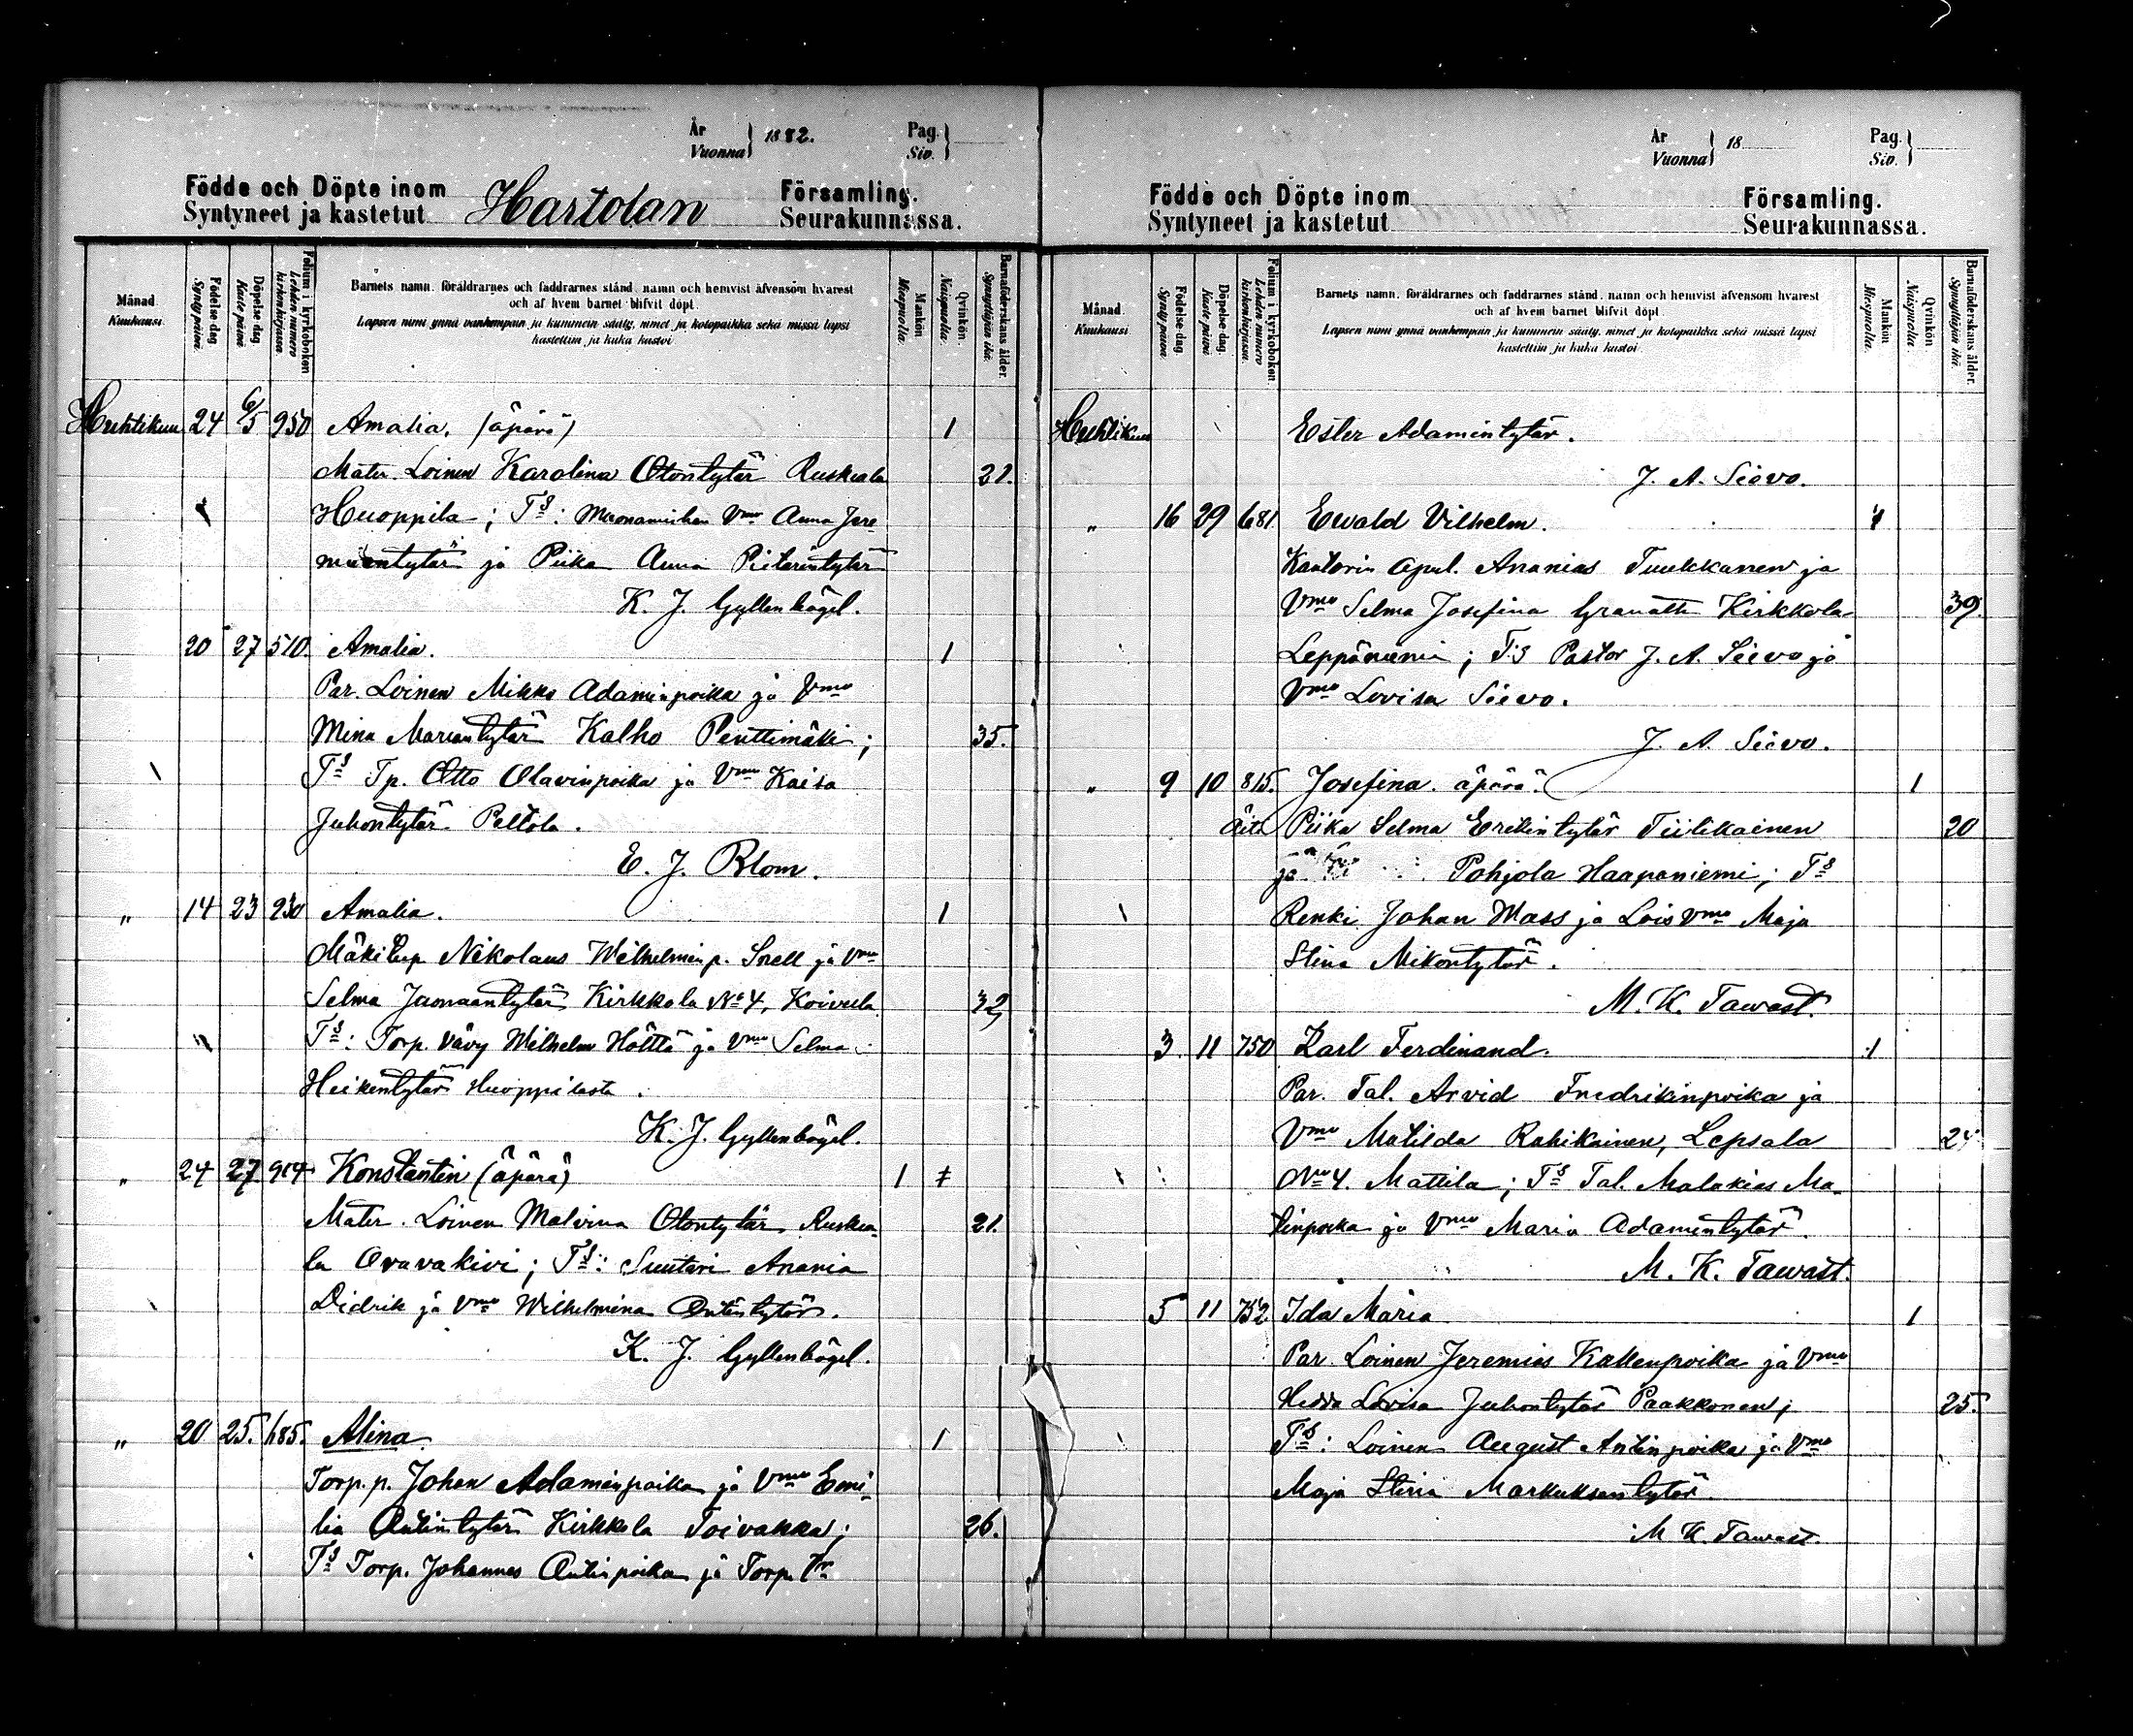 År
Vuonna 1882. Pag.
Siv.
Födde och Döpte inom Hartolan Församling.
Syntyneet ja kastetut Seurakunnassa.
Månad. Kuukausi.
Födelse dag. Synty päivä.
Döpelse dag. Kaste päivä
Folium i kyrkoboken Lehden numero kirkonkirjassa.
Barnets namn, föräldrarnes och faddrarnes stånd, namn och hemvist äfvensom hvarest
och af hvem barnet blifvit döpt.
Lapsen nimi ynnä vanhempain ja kummein sääty, nimet ja kotopaikka sekä missä lapsi
kastettiin ja kuka kastoi.
Mankön Miespuolia.
Qvinkön. Naispuolia.
Barnaföderskans ålder. Synnyttäjän ikä.
Huhtikuu 24 6/5 950 Amalia. (äpärä) 1
Mater. Loinen Karolina Otontytär Ruskeala 21.
Huoppila; T:s: Vmo Anna Jere-
miantytär ja Piika Anna Pietarintytär
K. J. Gyllenbögel.
20 27 510. Amalia. 1
Par. Loinen Mikko Adaminpoika ja Vmo
Mina Mariantytär Kalho Penttimäki; 35.
T:s Tp. Otto Olavinpoika ja Vmo Kaisa
Juhontytär Peltola.
E. J. Blom.
" 14 23 230 Amalia. 1
Mäkitup Nikolaus Wilhelmin p. Snell ja Vmo
Selma Kirkkola No 4, Koivula 32
T:s: Torp. vävy Wilhelm Höltta ja Vmo Selma
Heikintytär Huoppilasta.
K. J. Gyllenbögel.
" 24 27 914 Konstantin (äpärä) 1
Mater. Loinen Malvina Otontytär, Ruskea- 21.
la Oravakivi; T:s: Suutari Anania
Didrik ja Vmo Wilhelmina Antintytär.
K. J. Gyllenbögel.
" 20 25. 685. Alina. 1
Torp. p. Johan Adaminpoika ja Vmo Emi-
lia Antintytär Kirkkola Toivakka; 26.
T:s Torp. Johannes Antinpoika ja Torp. Vr
År
Vuonna 18 Pag.
Siv.
Födde och Döpte inom Församling.
Syntyneet ja kastetut Seurakunnassa.
Månad. Kuukausi
Födelse dag. Synty päivä.
Döpelse dag. Kaste päivä
Folium i kyrkoboken. Lehden numero kirkonkirjassa.
Barnets namn, föräldrarnes och faddrarnes stånd, namn och hemvist äfvensom hvarest
och af hvem barnet blifvit döpt.
Lapsen nimi ynnä vanhempain ja kummein sääty, nimet ja kotopaikka sekä missä lapsi
kastettiin ja kuka kastoi.
Mankön Miespuolia.
Qvinkön Naispuolia.
Barnaföderskans ålder. Synnyttäjän ikä.
Huhtikuu Ester Adamintytär.
J. A. Siévo.
" 16 29 681 Ewald Vilhelm. 1
Kanttorin apul. Ananias Tuukkanen ja
Vmo Selma Josefina Granath Kirkkola 39.
Leppäniemi; T:s Pastor J. A. Siévo ja
Vmo Lovisa Siévo.
J. A. Siévo.
" 9 10 815. Josefina. äpärä. 1
Äiti Piika Selma Erikintytär Tiilikainen 20
Pohjola Haapaniemi; T:s
Renki Johan Mass ja Lois Vmo Maja
Stina Mikontytär.
M. K. Tawast.
3. 11 750 Karl Ferdinand. 1
Par. Tal. Arvid Fredrikinpoika ja
Vmo Matilda Rahikainen, Lepsala 24
No 4. Mattila; T:s Tal. Malakias Ma-
tinpoika ja Vmo Maria Adamintytär.
M. K. Tawast.
5 11 752 Ida Maria 1
Par. Loinen Jeremias Kallenpoika ja Vmo
Hedda Lovisa Juhontytär Paakkonen; 25.
T:s: Loinen August Antinpoika ja Vmo
Maja Stina Markuksentytär.
M. K. Tawast.